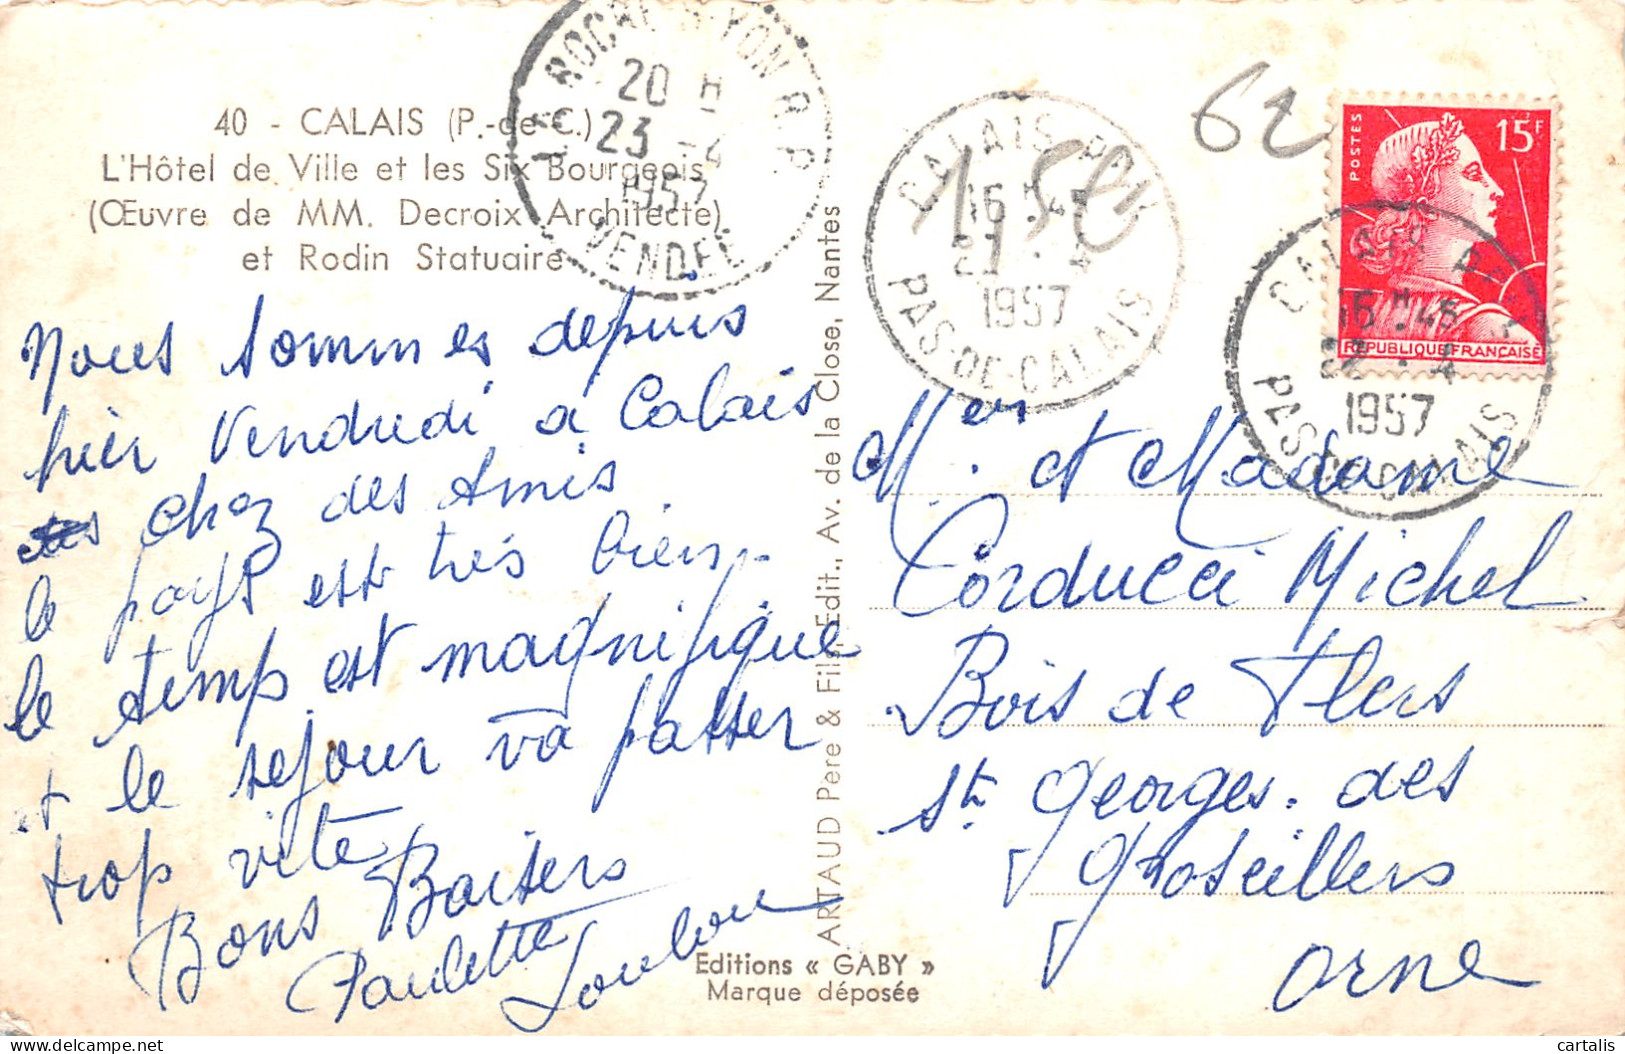 40 - CALAIS (P.-de-C.)
L'Hôtel de Ville et les Six Bourgeois
(Œuvre de MM. Decroix Architecte)
et Rodin Statuaire
Nous sommes depuis
hier Vendredi a Calais
chez des Amis
le pays est très bien.
le temp est magnifique
et le sejour va passer
trop vite
Bons Baisers
Paulette
Loulou
LA ROCHE-S-YON R.P.
20 H
23 -4
1957
VENDÉE
ARTAUD Père & Fils, Edit., Av. de la Close, Nantes
Editions « GABY »
Marque déposée
CALAIS
16 H 45
1957
PAS-DE-CALAIS
1,50
62
POSTES
15F
REPUBLIQUE FRANÇAISE
CALAIS
16 H 45
22 - 4
1957
PAS-DE-CALAIS
Mer. et Madame
Corducci Michel
Bois de Flers
St. Georges. des
Groseillers
Orne
cartalis
delcampe.net